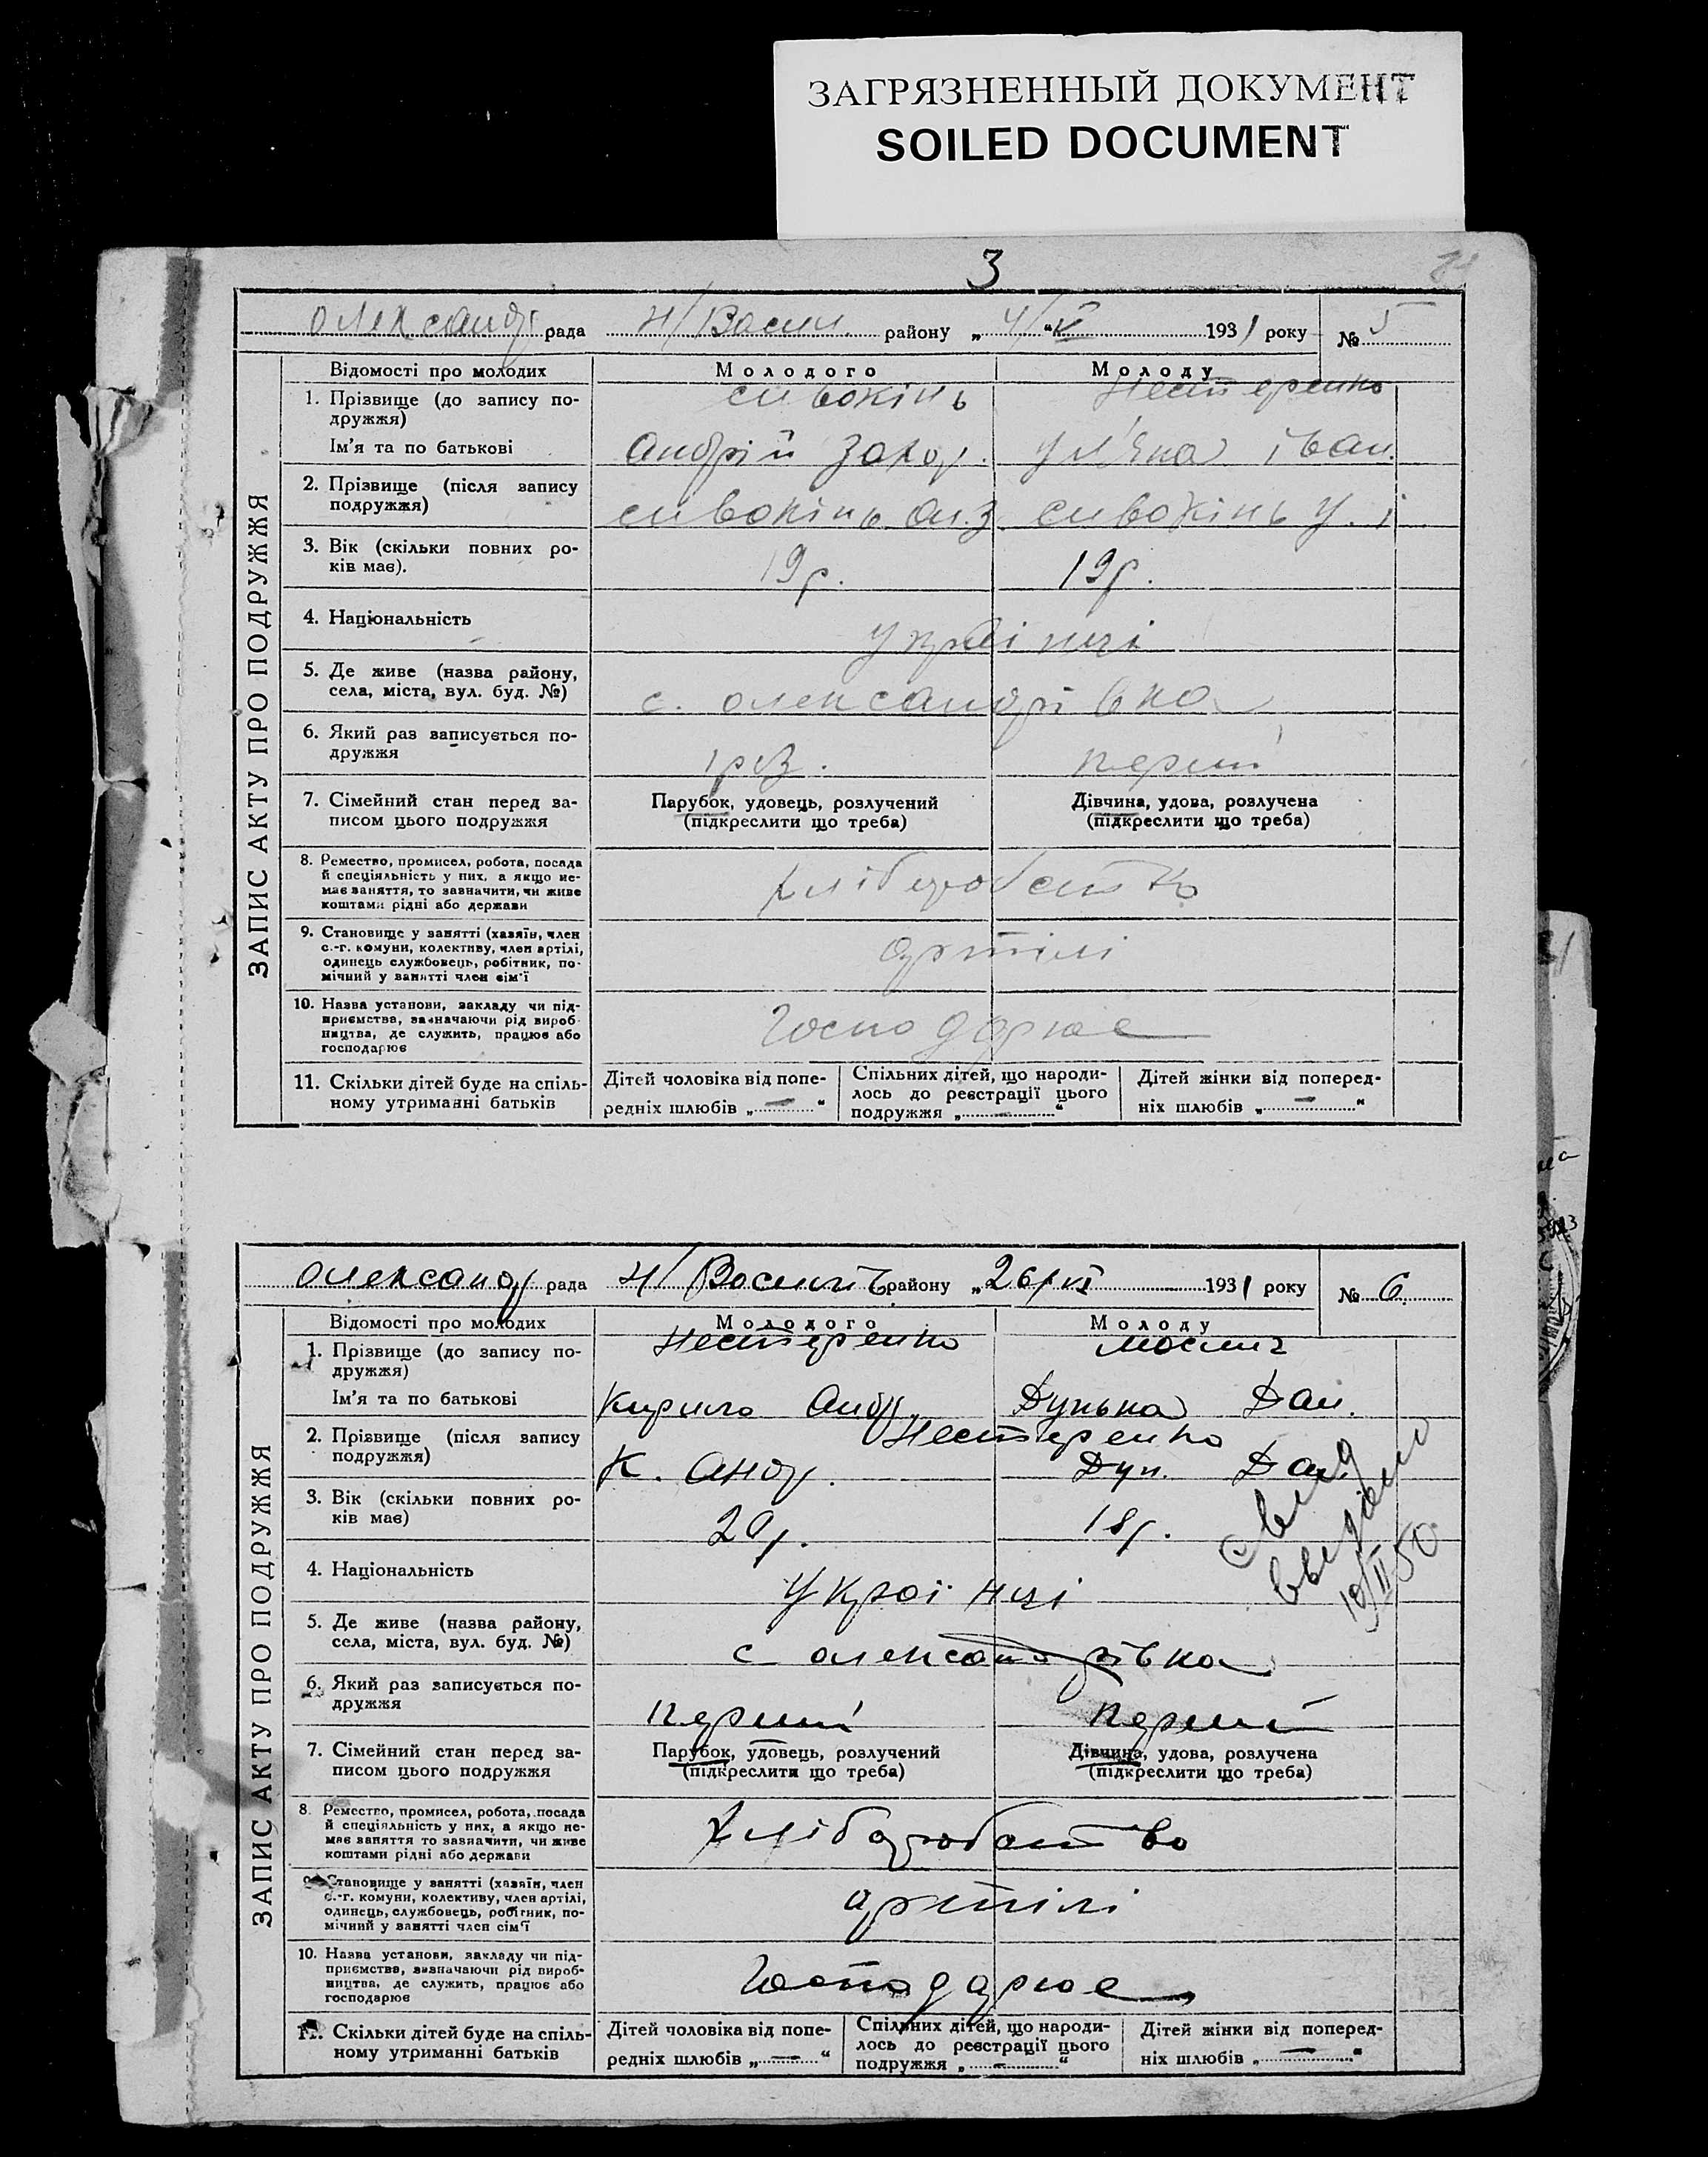 ЗАГРЯЗНЕННЫЙ ДОКУМЕНТ
SOILED DOCUMENT
3
ЗАПИС АКТУ ПРО ПОДРУЖЖЯ
Олександр рада Н/Васил. району „4/“ V 1931 року № 5
Відомості про молодих Молодого Молоду
1. Прізвище (до запису по-
дружжя) сивокінь Нестеренко
Ім'я та по батькові Андрій Захар. Ул'яна Іван.
2. Прізвище (після запису
подружжя) сивокінь Ан. З. сивокінь У. І
3. Вік (скільки повних ро-
ків має). 19 р. 19 р.
4. Національність українці
5. Де живе (назва району,
села, міста, вул. буд. №) с. олександрівка
6. Який раз записується по-
дружжя 1 раз. перший
7. Сімейний стан перед за- Парубок, удовець, розлучений Дівчина, удова, розлучена
писом цього подружжя (підкреслити що треба) (підкреслити що треба)
8. Ремество, промисел, робота, посада
й спеціяльність у них, а якщо не-
має заняття, то зазначити, чи живе
коштами рідні або держави хліборобство
9. Становище у занятті (хазяїн, член
с.-г. комуни, колективу, член артілі,
одинець службовець, робітник, по-
мічний у занятті член сім'ї артілі
10. Назва установи, закладу чи під-
приємства, зазначаючи рід вироб-
ництва, де служить, працює або
господарює Господарює
11. Скільки дітей буде на спіль- Дітей чоловіка від попе- Спільних дітей, що народи- Дітей жінки від поперед-
ному утриманні батьків редніх шлюбів „—“ лось до реєстрації цього ніх шлюбів „—“
подружжя „—“
ЗАПИС АКТУ ПРО ПОДРУЖЖЯ
Олександр рада Н/Василів району „26/VI 1931 року № 6
Відомості про молодих Молодого Молоду
1. Прізвище (до запису по-
дружжя) Нестеренко
Ім'я та по батькові Кирило Андр. Дунька Дан.
2. Прізвище (після запису Нестеренко
подружжя) К. Андр. Дун. Дан.
3. Вік (скільки повних ро-
ків має) 20 р. 18 р.
4. Національність Українці
5. Де живе (назва району,
села, міста, вул. буд. №) с олександрівка
6. Який раз записується по-
дружжя перший перший
7. Сімейний стан перед за- Парубок, удовець, розлучений Дівчина, удова, розлучена
писом цього подружжя (підкреслити що треба) (підкреслити що треба)
8. Ремество, промисел, робота, посада
й спеціяльність у них, а якщо не-
має заняття то зазначити, чи живе
коштами рідні або держави хліборобство
9. Становище у занятті (хазяїн, член
с.-г. комуни, колективу, член артілі,
одинець, службовець, робітник, по-
мічний у занятті член сім'ї артілі
10. Назва установи, закладу чи під-
приємства, зазначаючи рід вироб-
ництва, де служить, працює або
господарює Господарює
11. Скільки дітей буде на спіль- Дітей чоловіка від попе- Спільних дітей, що народи- Дітей жінки від поперед-
ному утриманні батьків редніх шлюбів „—“ лось до реєстрації цього ніх шлюбів „—“
подружжя „—“
10/II 50